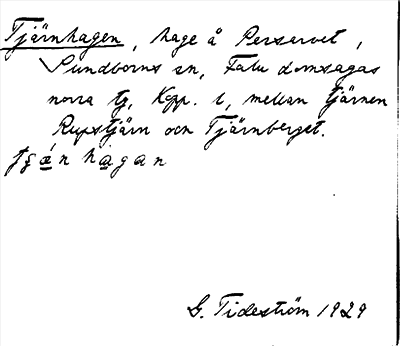 Tjärnhagen, hage å Persarvet,
Sundborns sn, Falu domsagas
norra tg, Kopp. l, mellan tjärnen
Rupstjärn och Tjärnberget.
hagan
G. Tideström 1929